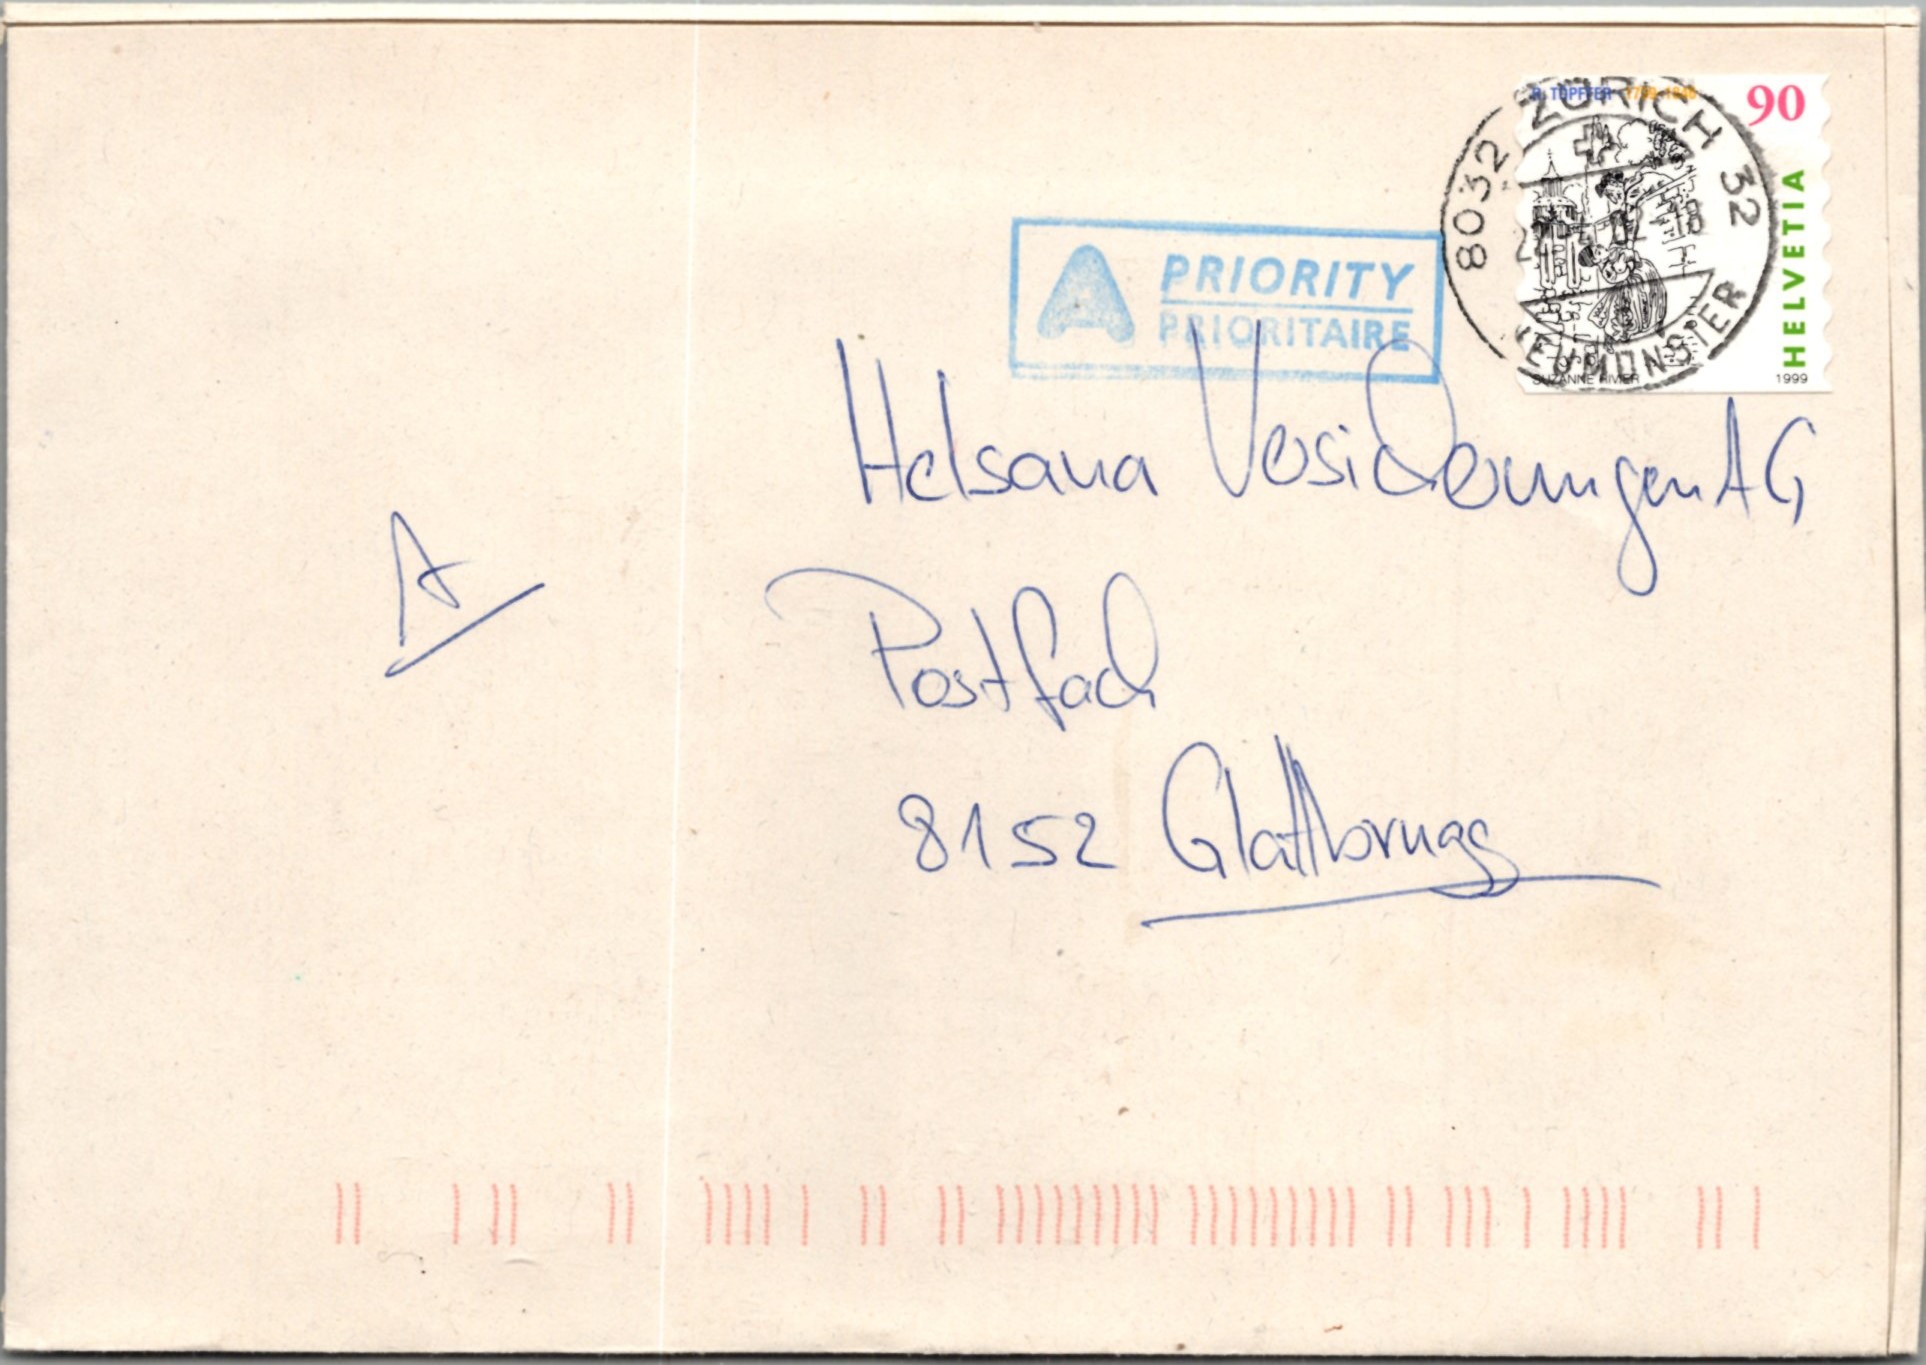 R. TÖPFFER 1799-1846
90
HELVETIA
SUZANNE RIVIER
1999
8032 ZÜRICH 32
NEUMÜNSTER
A PRIORITY
PRIORITAIRE
Helsana Versicherungen AG
A
Postfach
8152 Glattbrugg